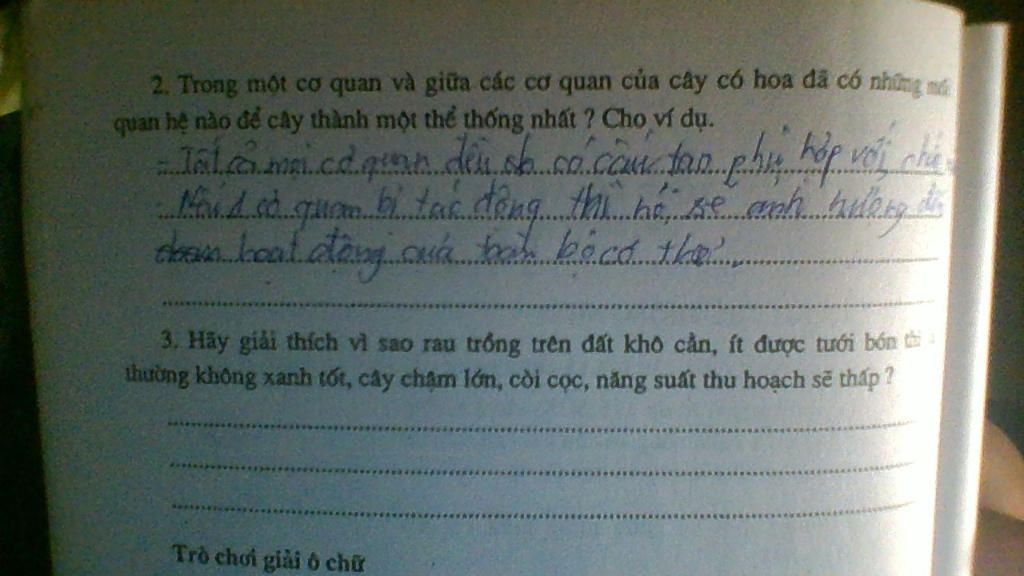 2. Trong một cơ quan và giữa các cơ quan của cây có hoa đã có những mối
quan hệ nào để cây thành một thể thống nhất ? Cho ví dụ.
- Tất cả mọi cơ quan đều có cấu tạo phù hợp với
- Nếu 1 cơ quan bị tác động thì nó sẽ ảnh hưởng đến
hoạt động của toàn bộ cơ thể.
3. Hãy giải thích vì sao rau trồng trên đất khô cằn, ít được tưới bón thì
thường không xanh tốt, cây chậm lớn, còi cọc, năng suất thu hoạch sẽ thấp ?
Trò chơi giải ô chữ